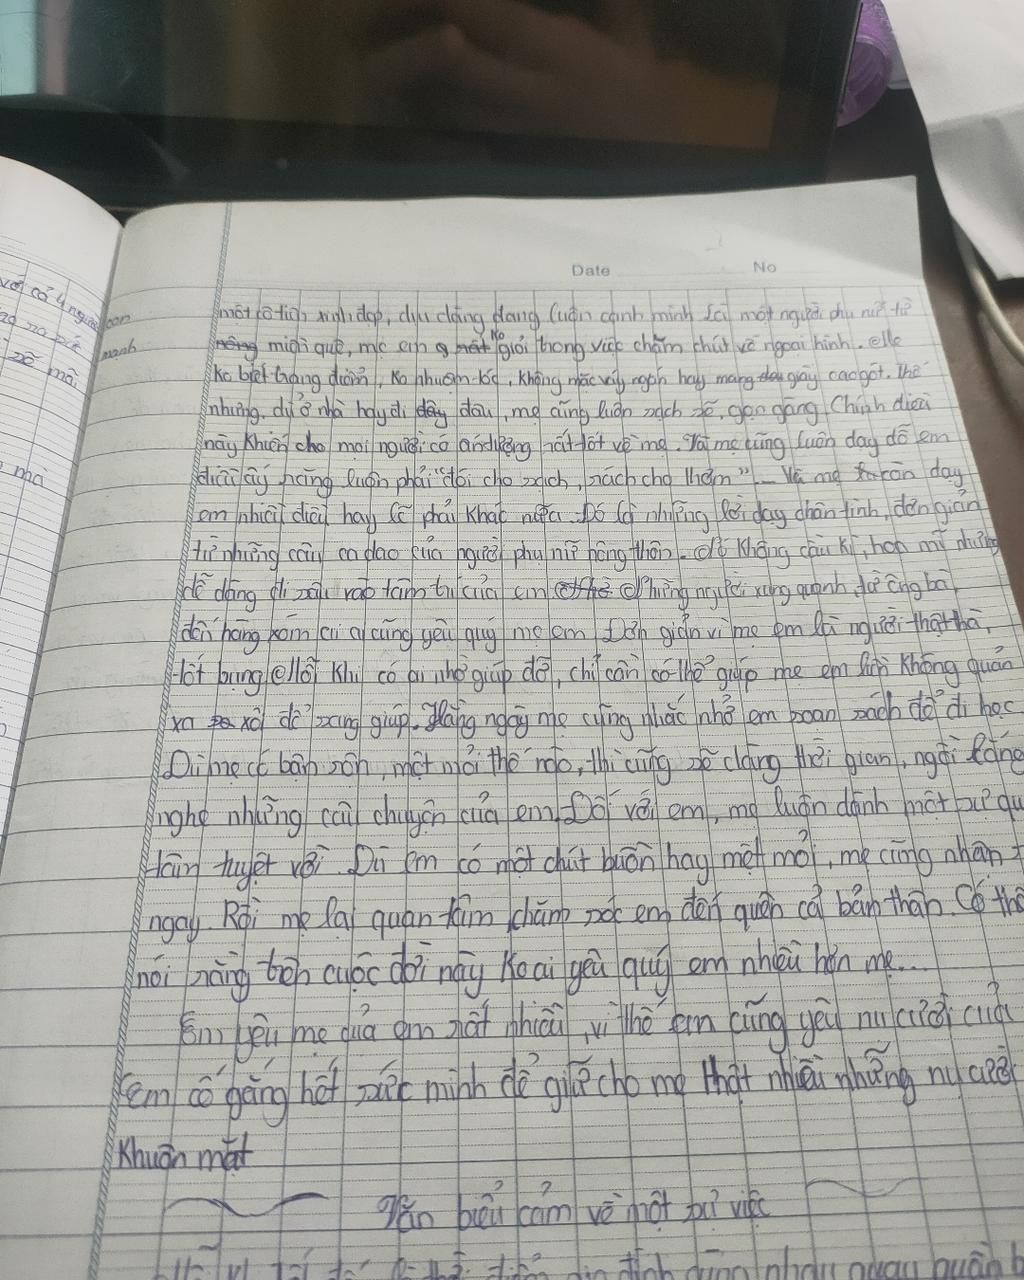 với cả 4 người con
mạnh
mồi
nhà
Date No
một cô tích xinh đẹp, dịu dàng đang luôn cạnh mình là một người phụ nữ từ
nông miền quê, mẹ em q rất ko giỏi trong việc chăm chút về ngoại hình. Mẹ
ko biết trang điểm, ko nhuộm tóc, không mặc váy ngắn hay mang giày cao gót. Thế
nhưng, dù ở nhà hay đi đây đâu, mẹ cũng luôn sạch sẽ, gọn gàng. Chính điều
này khiến cho mọi người có ấn tượng rất tốt về mẹ. Và mẹ cũng luôn dạy dỗ em
điều ấy rằng luôn phải "đói cho sạch, rách cho thơm"... Và mẹ còn dạy
em nhiều điều hay lẽ phải khác nữa. Đó là những lời dạy chân tình, đơn giản
từ những câu ca dao của người phụ nữ nông thôn. Nó không cầu kì, hoa mĩ nhưng
dễ dàng đi sâu vào tâm trí của em Những người xung quanh, từ ông bà,
đến hàng xóm ai ai cũng yêu quý mẹ em. Đơn giản vì mẹ em là người thật thà,
tốt bụng. Mỗi khi có ai nhờ giúp đỡ, chỉ cần có thể giúp mẹ em luôn không quản
xa xôi để sang giúp. Hằng ngày mẹ cũng nhắc nhở em soạn sách để đi học
Dù mẹ có bận rộn, mệt mỏi thế nào, thì cũng sẽ dành thời gian, ngồi lắng
nghe những câu chuyện của em. Đối với em, mẹ luôn dành một sự qu
tâm tuyệt vời. Dù em có một chút buồn hay mệt mỏi, mẹ cũng nhận
ngay. Rồi mẹ lại quan tâm, chăm sóc em đến quên cả bản thân. Có thể
nói rằng trên cuộc đời này ko ai yêu quý em nhiều hơn mẹ...
Em yêu mẹ của em rất nhiều, vì thế em cũng yêu nụ cười của
Em cố gắng hết sức mình để giữ cho mẹ thật nhiều những nụ cười
Khuôn mặt
Văn biểu cảm về một sự việc